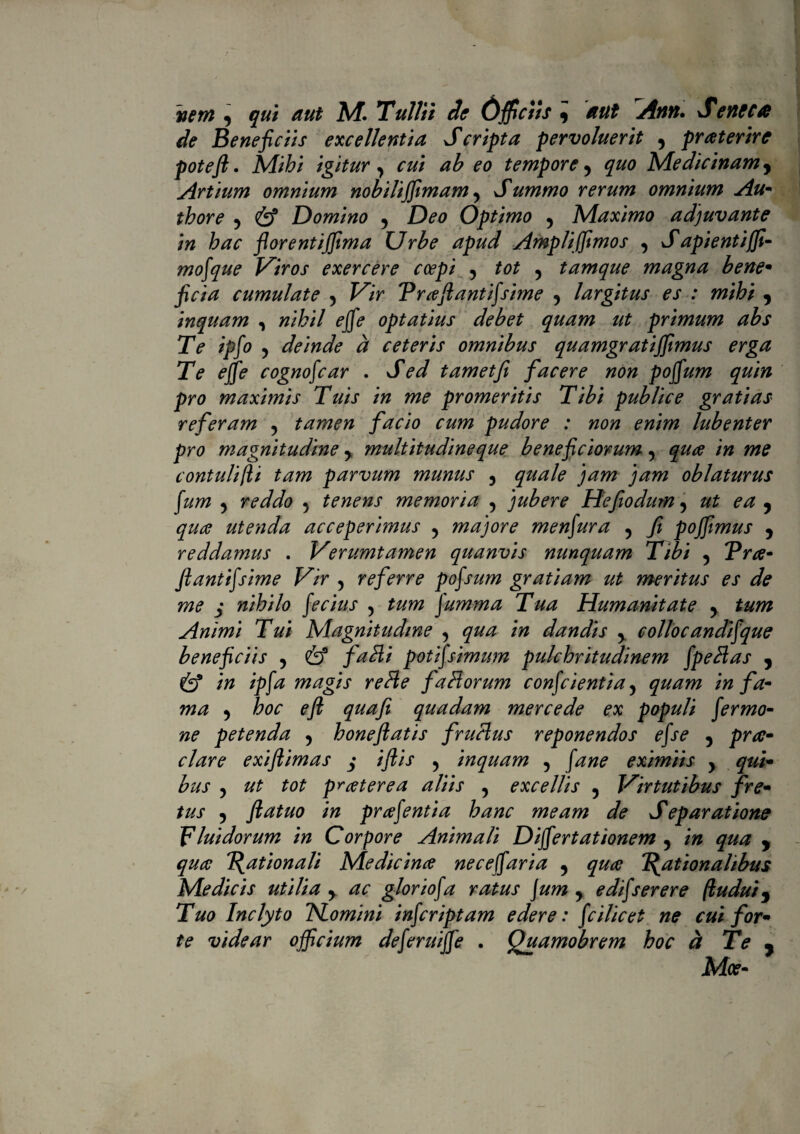 nem , qui aut M. Tullii de Officiis , aut Ann. Senecæ
de Beneficiis excellentia Scripta pervoluerit , præterire
poteſt. Mihi igitur , cui ab eo tempore, quo Medicinam,
Artium omnium nobiliſſimam, Summo rerum omnium Au-
thore , & Domino , Deo Optimo , Maximo adjuvante
in hac florentiſſima Urbe apud Ampliſſimos , Sapientiſſi-
moſque Viros exercere cœpi , tot , tamque magna bene-
ficia cumulate , Vir Præſtantiſsime , largitus es : mihi ,
inquam , nihil eſſe optatius debet quam ut primum abs
Te ipſo , deinde à ceteris omnibus quamgratiſſimus erga
Te eſſe cognoſcar . Sed tametſi facere non poſſum quin
pro maximis Tuis in me promeritis Tibi publice gratias
referam , tamen facio cum pudore : non enim lubenter
pro magnitudine, multitudineque beneficiorum , quæ in me
contuliſti tam parvum munus , quale jam jam oblaturus
ſum , reddo , tenens memoria , jubere Heſiodum, ut ea ,
quæ utenda acceperimus , majore menſura , ſi poſſimus ,
reddamus . Verumtamen quanvis nunquam Tibi , Præ-
ſtantiſsime Vir , referre poſsum gratiam ut meritus es de
me ; nihilo ſecius , tum ſumma Tua Humanitate , tum
Animi Tui Magnitudine , qua in dandis , collocandiſque
beneficiis , & facti potiſsimum pulchritudinem ſpectas ,
& in ipſa magis recte factorum conſcientia, quam in fa-
ma , hoc eſt quaſi quadam mercede ex populi ſermo-
ne petenda , honeſtatis fructus reponendos eſse , præ-
clare exiſtimas ; iſtis , inquam , ſane eximiis , qui-
bus , ut tot præterea aliis , excellis , Virtutibus fre-
tus , ſtatuo in præſentia hanc meam de Separatione
Fluidorum in Corpore Animali Diſſertationem , in qua ,
quæ Rationali Medicinæ neceſſaria , quæ Rationalibus
Medicis utilia , ac glorioſa ratus ſum , ediſserere ſtudui,
Tuo Inclyto Nomini inſcriptam edere: ſcilicet ne cui for-
te videar officium deſeruiſſe . Quamobrem hoc à Te ,
Mœ-